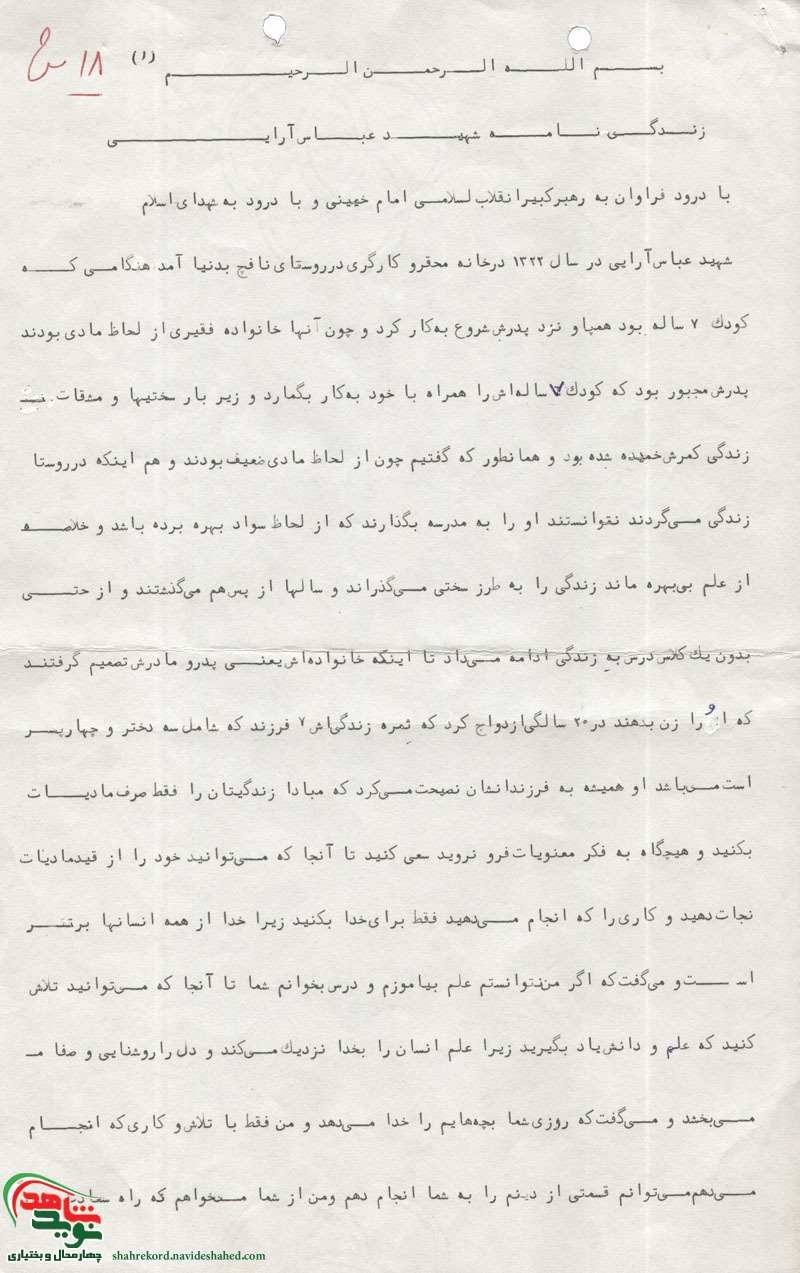 ۱۸ (۱)
بسم اللـه الـرحمـن الـرحیـم
زنـدگـی نـامـه شهیـد عبـاس آرایـی
با درود فراوان به رهبرکبیرانقلاب لسلامی امام خمینی و با درود به شهدای اسلام
شهید عباس آرایی در سال ۱۳۲۲ درخانه محقرو کارگری درروستای نافچ بدنیا آمد هنگامی که
کودك ۷ ساله بود همپاو نزد پدرش شروع به‌کار کرد و چون آنها خانواده فقیری از لحاظ مادی بودند
پدرش مجبور بود که کودك ۷ ساله‌اش را همراه با خود به‌کار بگمارد و زیر بار سختیها و مشقات
زندگی کمرش خمیده شده بود و همانطور که گفتیم چون از لحاظ مادی ضعیف بودند و هم اینکه درروستا
زندگی می‌گردند نتوانستند او را به مدرسه بگذارند که از لحاظ سواد بهره برده باشد و خلاصه
از علم بی‌بهره ماند زندگی را به طرز سختی می‌گذراند و سالها از پس هم می‌گذشتند و از حتی
بدون یك کلاس درس به زندگی ادامه می‌داد تا اینکه خانواده‌اش یعنی پدرو مادرش تصمیم گرفتند
که او را زن بدهند در ۲۰ سالگی ازدواج کرد که ثمره زندگی‌اش ۷ فرزند که شامل سه دختر و چهارپسر
است می‌باشد او همیشه به فرزندانشان نصیحت می‌کرد که مبادا زندگیتان را فقط صرف مادیات
بکنید و هیچگاه به فکر معنویات فرو نروید سعی کنید تا آنجا که می‌توانید خود را از قیدمادیات
نجات دهید و کاری را که انجام می‌دهید فقط برای خدا بکنید زیرا خدا از همه انسانها برتر
اسـت و می‌گفت که اگر من نتوانستم علم بیاموزم و درس بخوانم شما تا آنجا که می‌توانید تلاش
کنید که علم و دانش یاد بگیرید زیرا علم انسان را بخدا نزدیك می‌کند و دل را روشنایی و صفا مـ
می‌بخشد و می‌گفت که روزی شما بچه‌هایم را خدا می‌دهد و من فقط با تلاش و کاری که انجام
می‌دهم می‌توانم قسمتی از دینم را به شما انجام دهم ومن از شما میخواهم که راه سعادت
نوید شاهد
چهارمحال و بختیاری
shahrekord.navideshahed.com